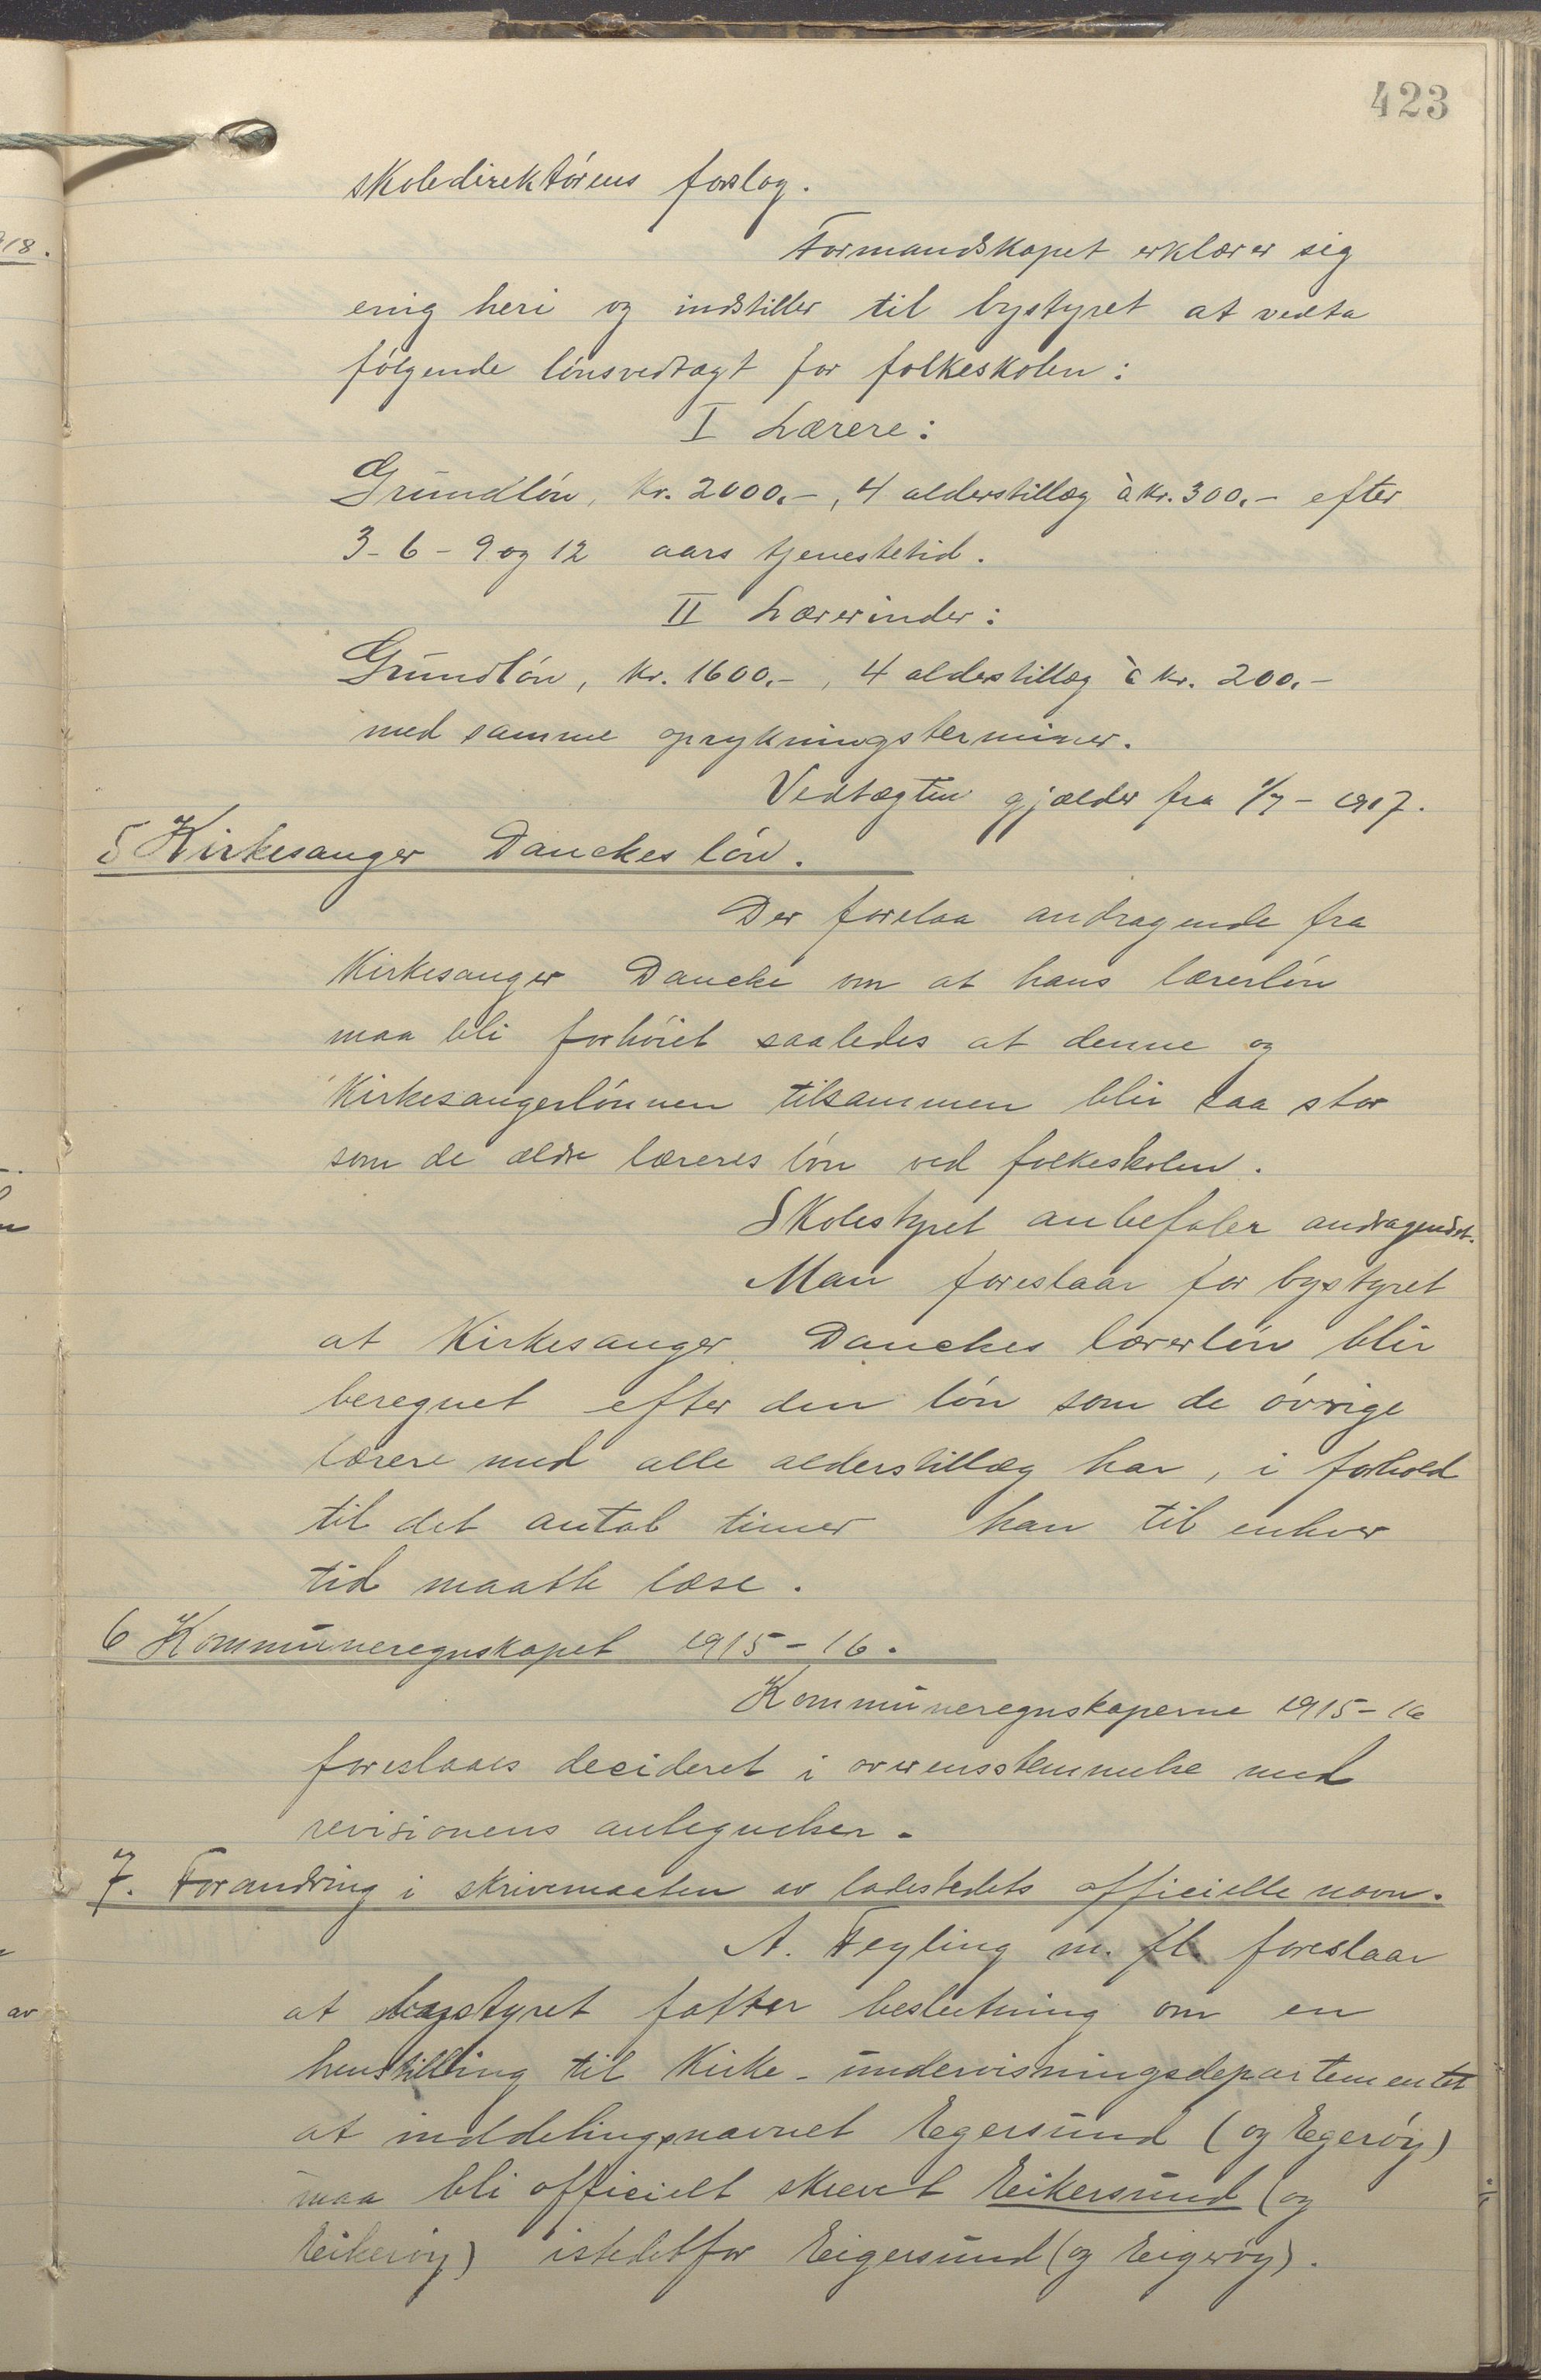 423
18.
skoledirektørens forslag.
Formandskapet erklærer sig
enig heri og indstiller til bystyret at vedta
følgende lønsvedtægt for folkeskolen:
I Lærere:
Grundløn, kr. 2000.-, 4 alderstillæg à kr. 300.- efter
3 - 6 - 9 og 12 aars tjenestetid.
II Lærerinder:
Grundløn, kr. 1600.-, 4 alderstillæg à kr. 200.-
med samme oprykningsterminer.
Vedtægten gjælder fra 1/7 - 1917.
5 Kirkesanger Danckes løn.
Der forelaa andragende fra
Kirkesanger Dancke om at hans lærerløn
maa bli forhøiet saaledes at denne og
Kirkesangerlønnen tilsammen blir saa stor
som de ældre læreres løn ved folkeskolen.
Skolestyret anbefaler andragendet.
Man foreslaar for bystyret
at Kirkesanger Danckes lærerløn blir
beregnet efter den løn som de øvrige
lærere med alle alderstillæg har, i forhold
til det antal timer han til enhver
tid maatte læse.
6 Kommuneregnskapet 1915 - 16.
Kommuneregnskaperne 1915 - 16
foreslaaes decideret i overensstemmelse med
revisionens antegnelser.
7. Forandring i skrivemaaten av ladestedets officielle navn.
A. Feyling m. fl. foreslaar
at bystyret fatter beslutning om en
henstilling til Kirke - undervisningsdepartementet
at inddelingsnavnet Egersund (og Egerøy)
maa bli officielt skrevet Eikersund (og
Eikerøy) istedetfor Eigersund (og Eigerøy).
av